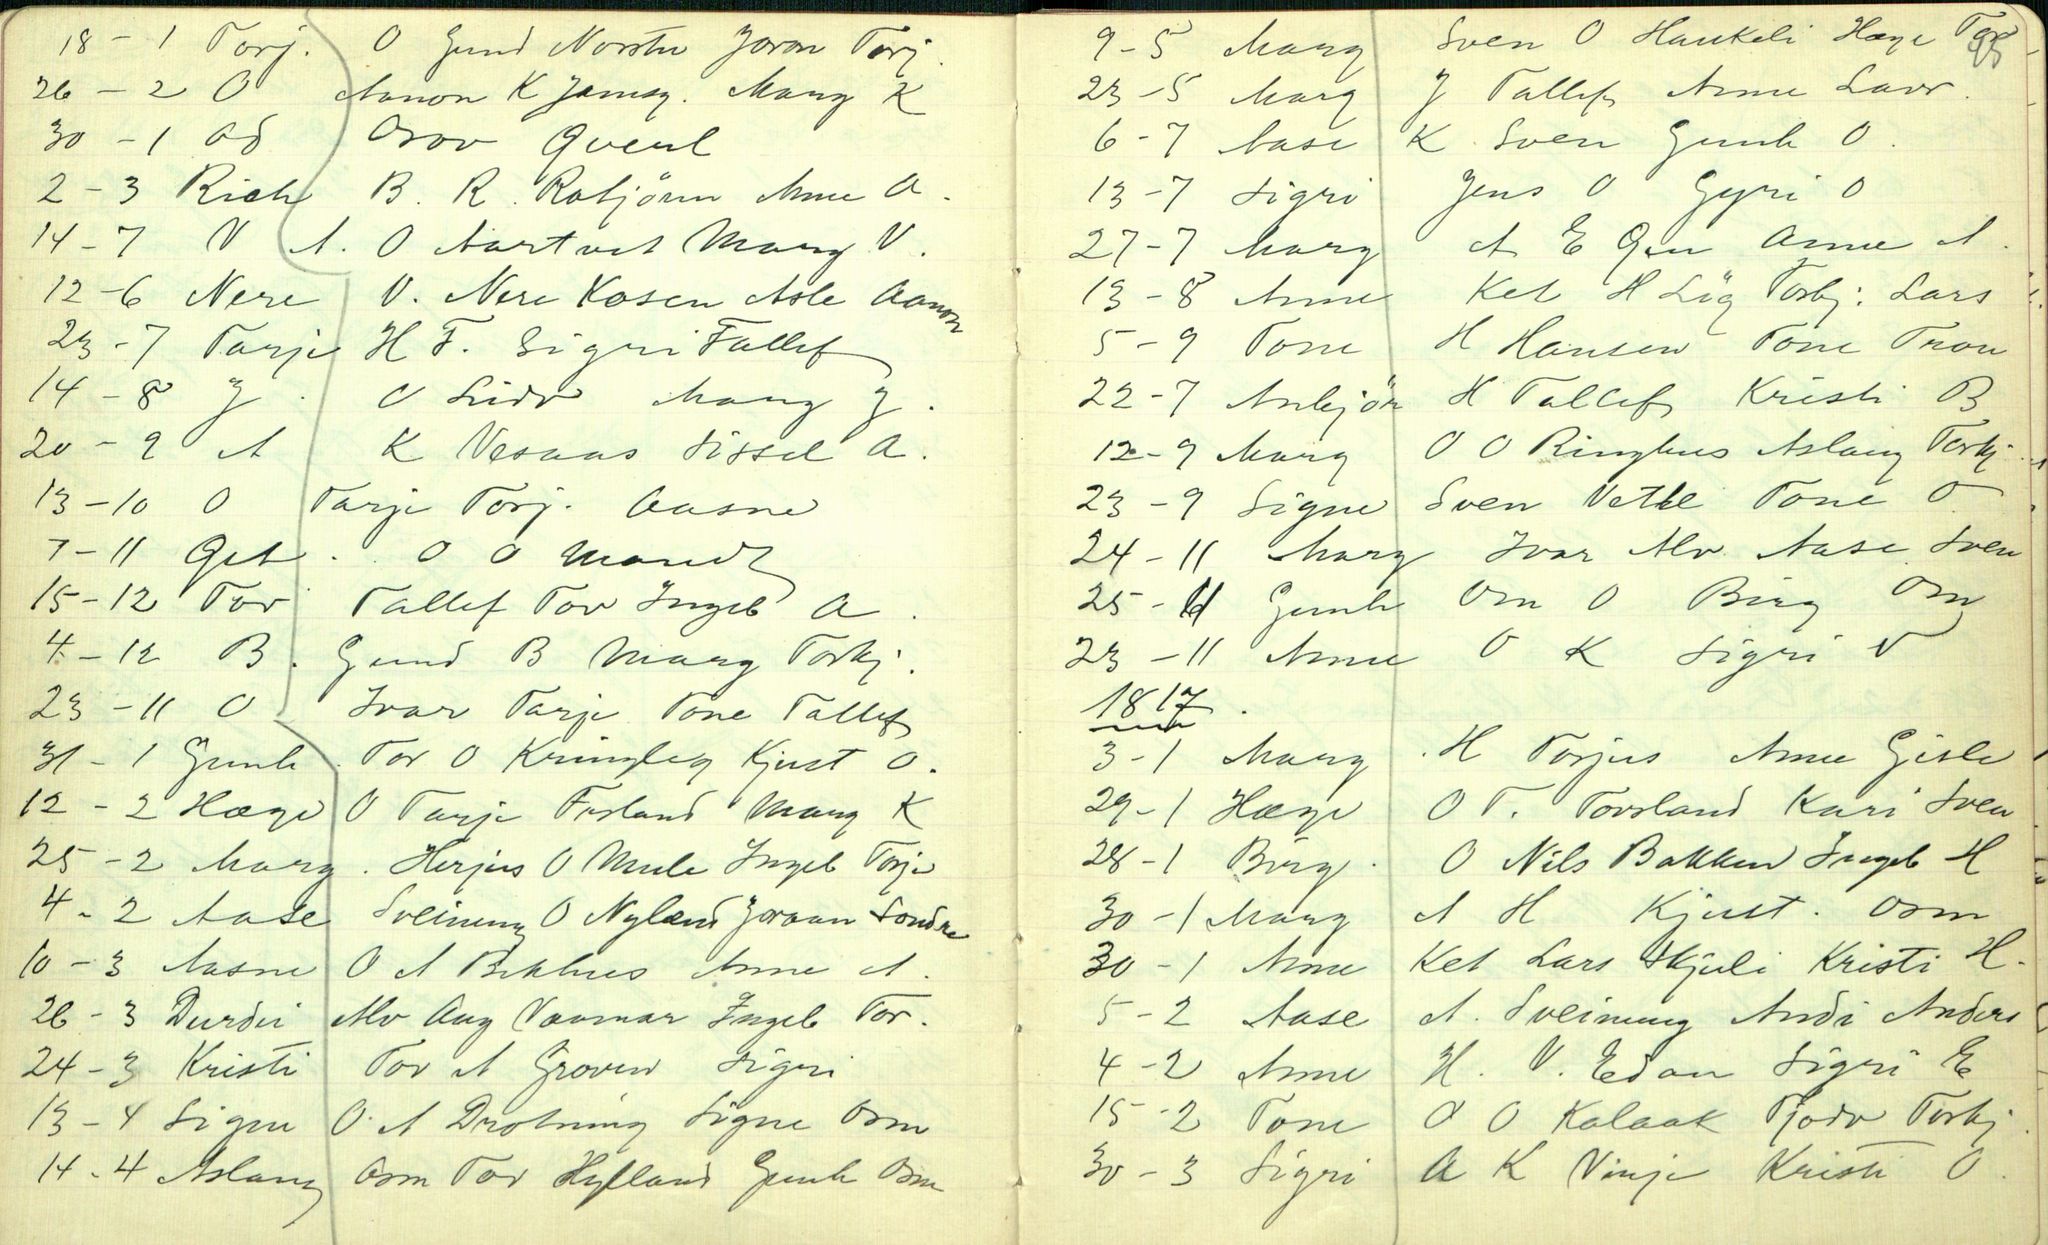 18 - 1 Torj. O Gund Norstu Joron Torj.
26 - 2 O Aanon K Jamsg. Marg K
30 - 1 Od Orov Qvenl
2 - 3 Rich B. R. Robjörnn Anne A.
14 - 7 V A. O Aartvet Marg V.
12 - 6 Nere V. Nere Kosen Asle Aanon
23 - 7 Tarje H F. Sigri Tallef
14 - 8 J. O Lidv Marg J.
20 - 9 A K Vesaas Sissel A.
13 - 10 O Tarje Torj. Aasne
7 - 11 Get. O O Mandt
15 - 12 Tov Tallef Tov Ingeb A.
4 - 12 B. Gund B Marg Torkj.
23 - 11 O Ivar Tarje Tone Tallef
31 - 1 Gunh. Tor O Kringleg Kjust O.
12 - 2 Hæge O Tarje Forland Marg K
25 - 2 Marg. Herjus O Mule Ingeb Torje
4 - 2 Aase Sveinung O Nyland Joraan Sondre
10 - 3 Aasne O A Anne A.
26 - 3 Durdei Alv Aag Vaamar Ingeb Tor.
24 - 3 Kristi Tov A Groven Sigri
13 - 4 Signe O. A Drotning Signe Osm
14 - 4 Aslaug Osm Tov Hylland Gunh Osm
9 - 5 Marg Sven O Haukeli Hæge Tor
95
23 - 5 Marg J Tallef Anne Lavr.
6 - 7 Aase K Sven Gunh O.
13 - 7 Sigri Jens O Gyri O
27 - 7 Marg A E Anne A.
13 - 8 Anne Ket H Lög Torbj: Lars
5 - 9 Tone H Hansen Tone Tron
22 - 7 Anbjör H Tallef Kristi B
12 - 9 Marg O O Ringhus Aslaug Torkj
23 - 9 Signe Sven Vetle Tone O
24 - 11 Marg Ivar Alv Aase Sven
25 - 11 Gunh Om O Birg Om
23 - 11 Anne O K Sigri V
1817.
3 - 1 Marg. H Torjus Anne Gisle
29 - 1 Hæge O T. Torsland Kari Sven
28 - 1 Birg. O Nils Bakken Ingeb H
30 - 1 Marg A H Kjust. Osm
30 - 1 Anne Ket Lars Skjuli Kristi H.
5 - 2 Aase A. Sveinung Andi Anders
4 - 2 Anne H. V. Edan Sigri E
15 - 2 Tone O O Kalaak Tjodv Torkj.
30 - 3 Sigri A K Vinje Kristi O.